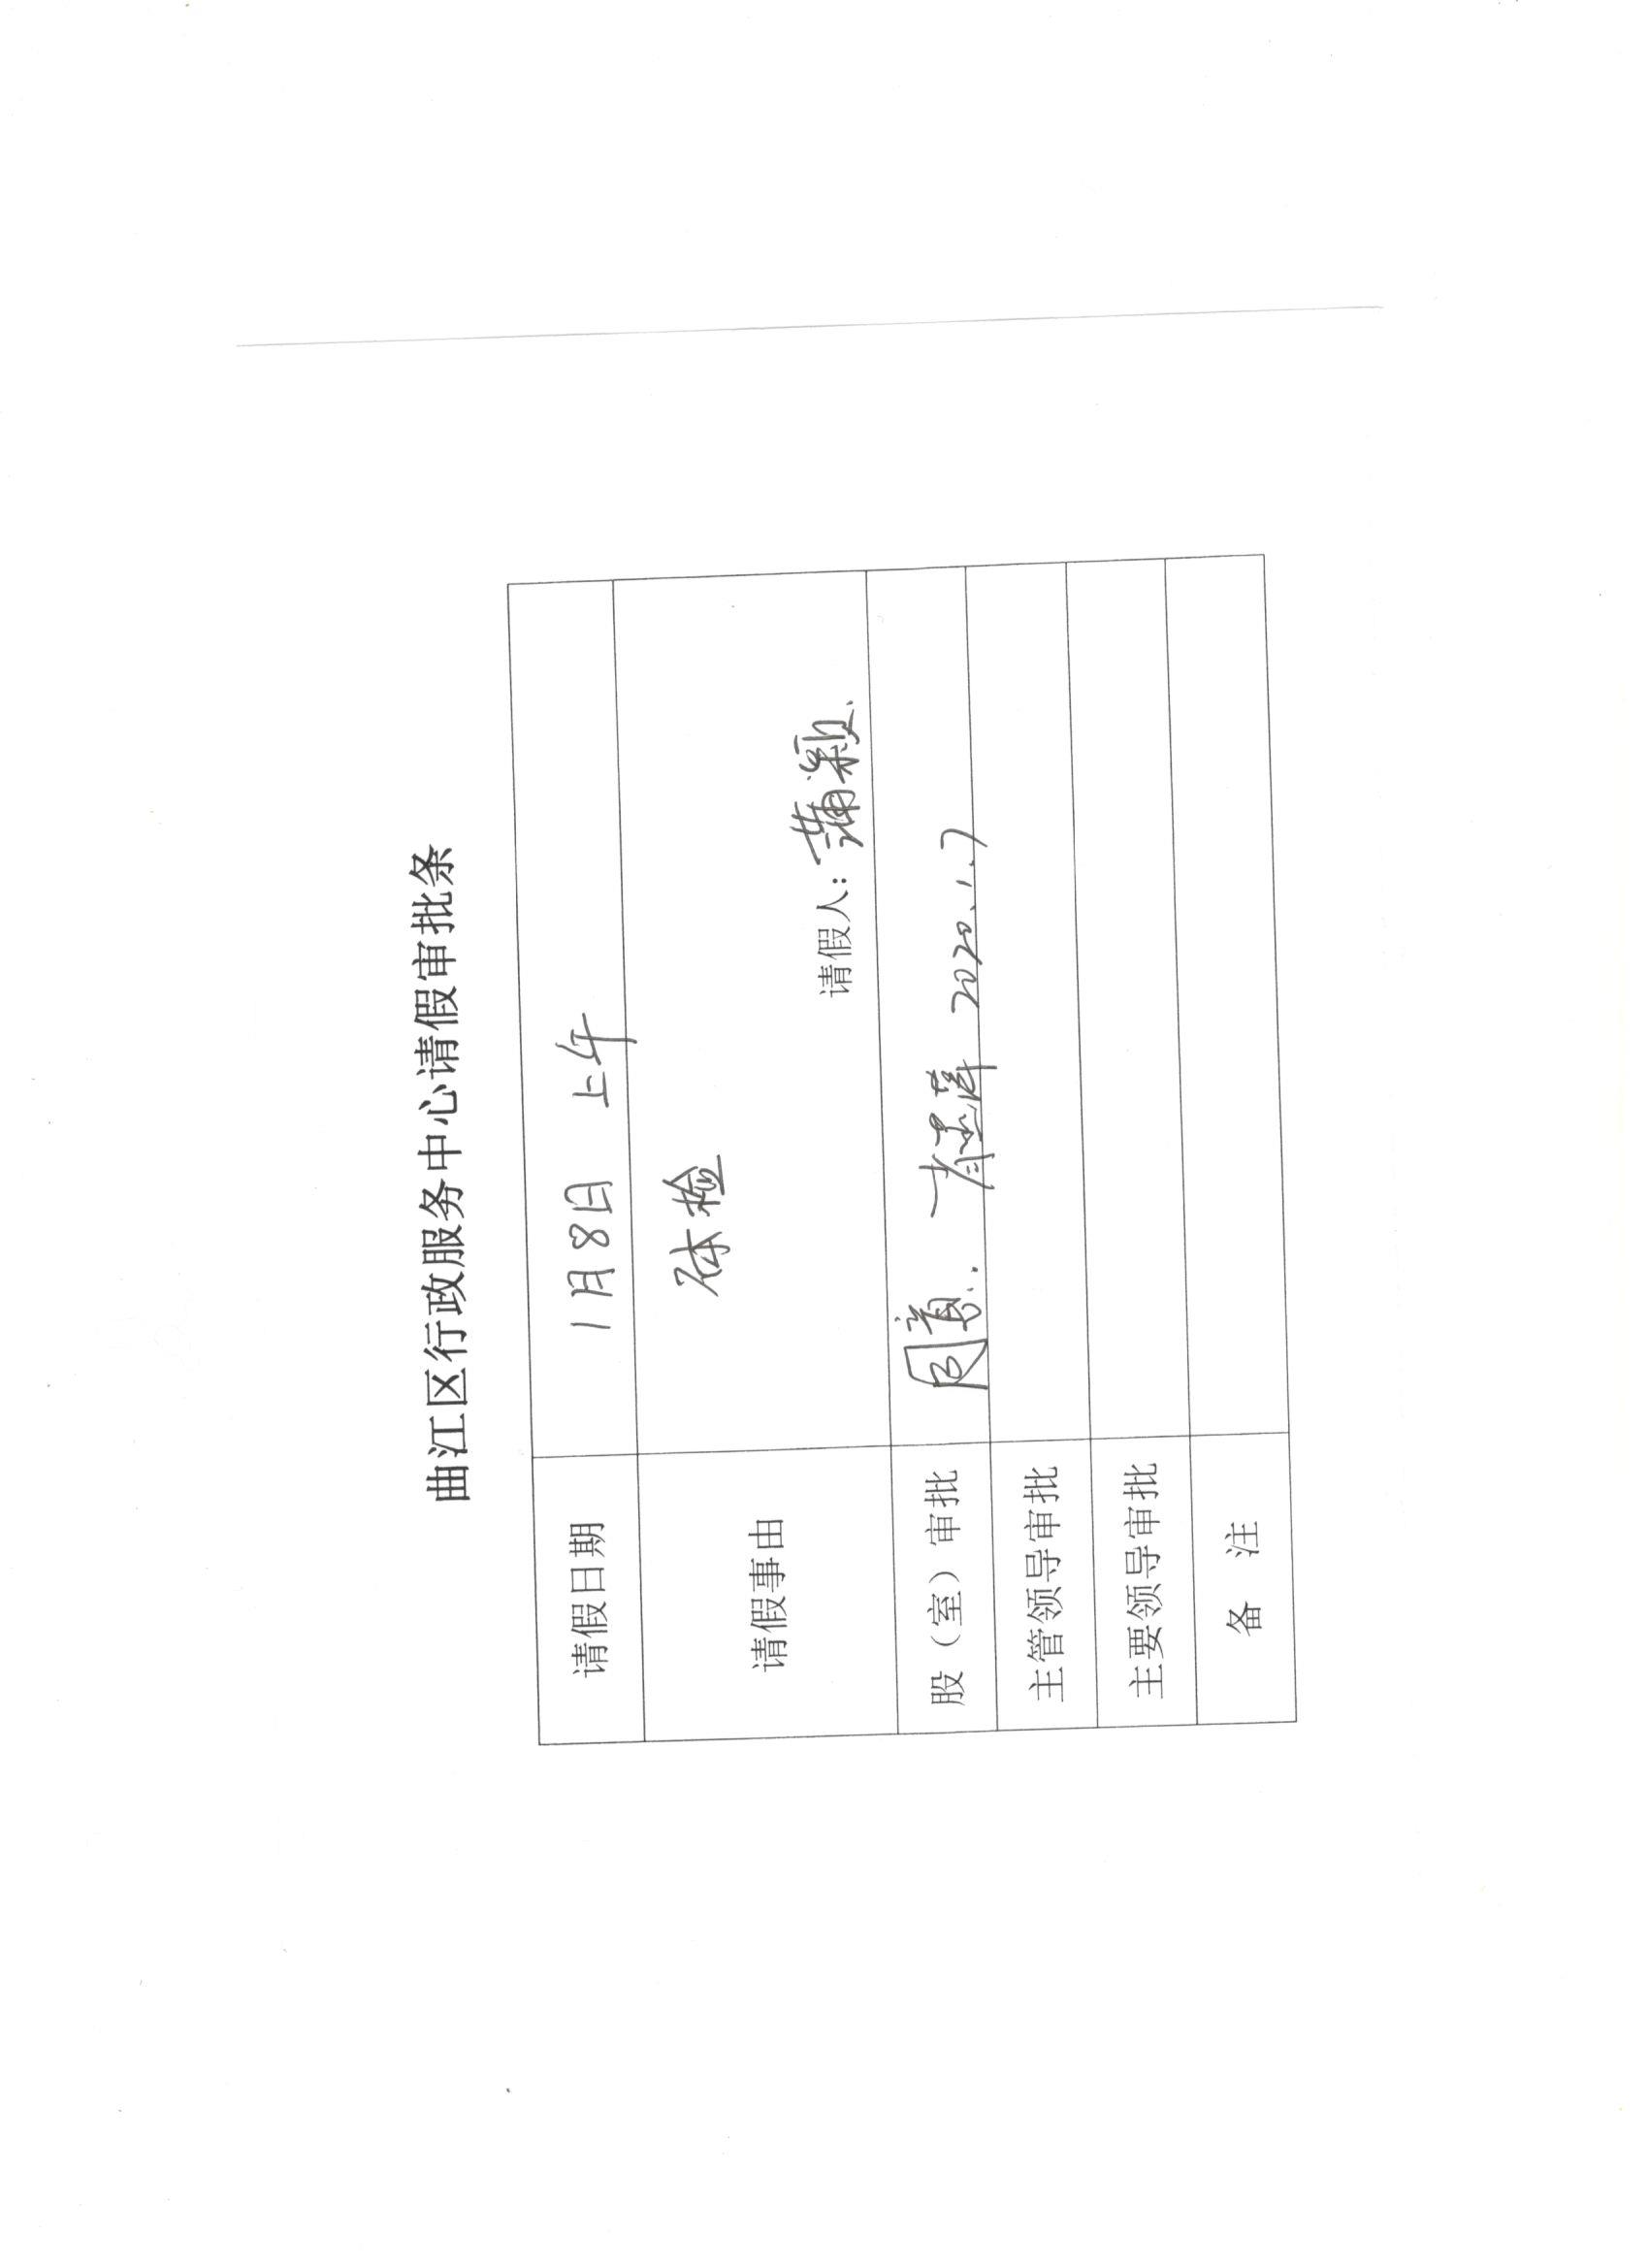 曲江区行政服务中心请假审批条
请假日期 1月8日 上午
请假事由 体检
请假人：蒲颖.
股（室）审批 同意. 2020.1.7
主管领导审批
主要领导审批
备 注